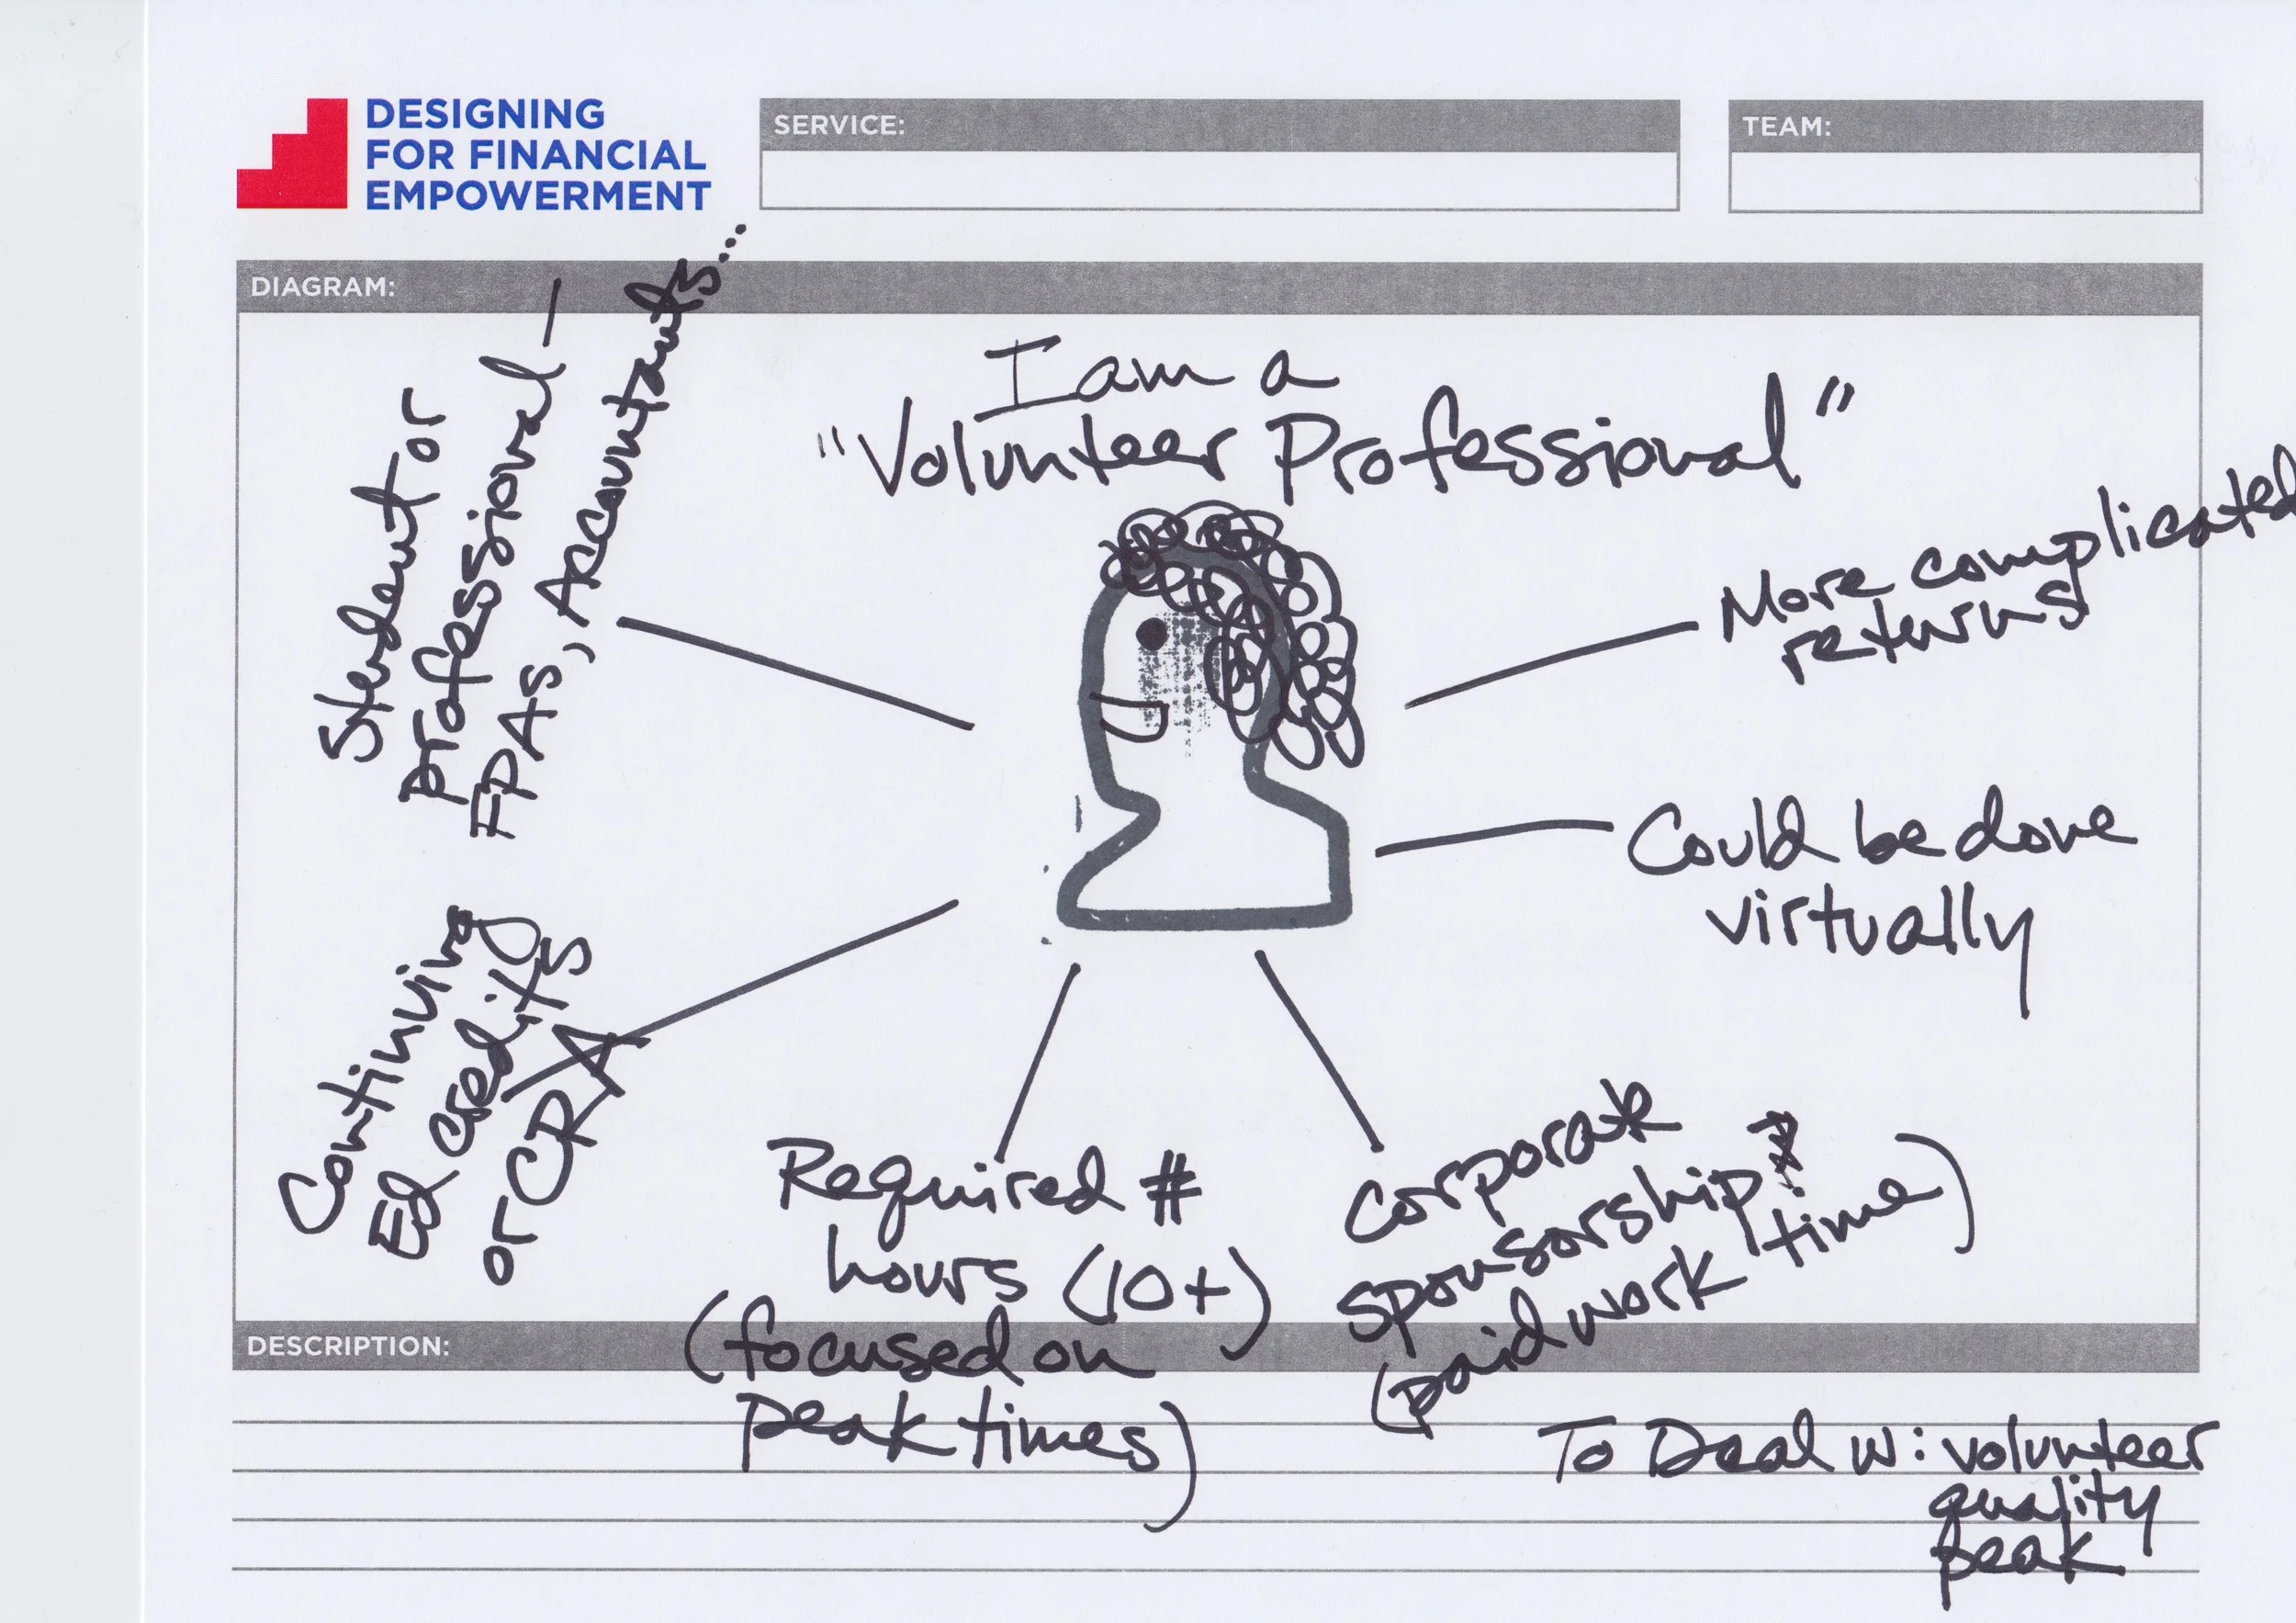 DESIGNING
FOR FINANCIAL
EMPOWERMENT
SERVICE:
TEAM:
DIAGRAM:
I am a
"Volunteer Professional"
Student or
professional —
FPAs, Accountants...
More complicated
returns
Could be done
virtually
Continuing
Ed credits
or CRA
Required #
hours (10+)
(focused on
peak times)
Corporate
sponsorship?
(paid work time)
DESCRIPTION:
To Deal w: volunteer
quality
peak